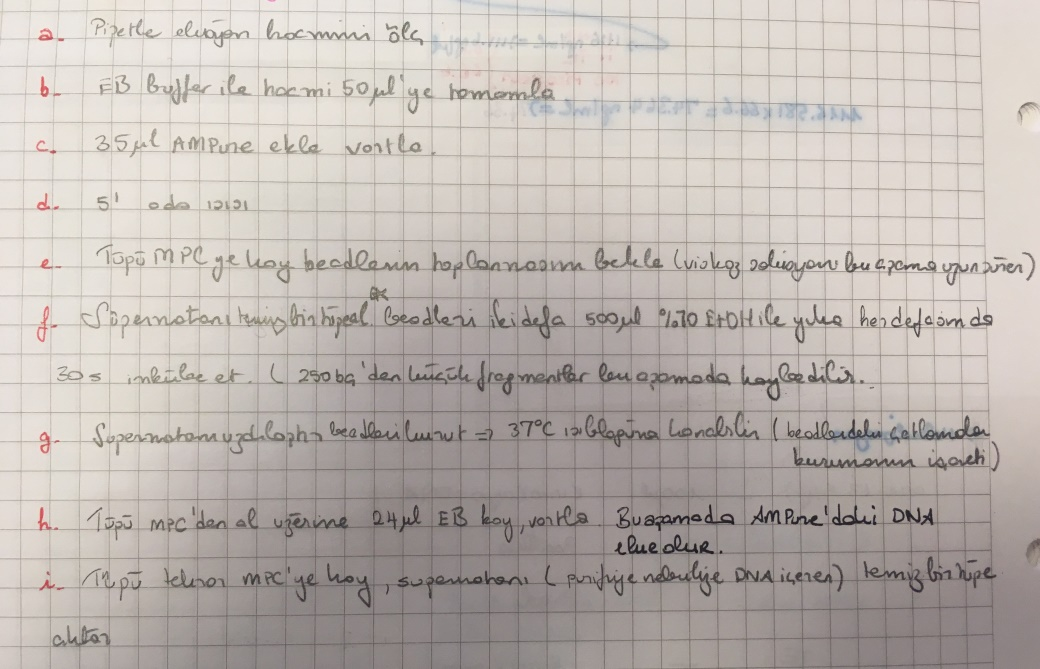 a- Pipetle elüsyon hacmini ölç
b- EB Buffer ile hacmi 50 µl'ye tamamla
c. 35 µl AMPure ekle vortla.
d- 5' oda ısısı
e- Tüpü MPC ye koy beadlerin toplanmasını bekle (viskoz solüsyon bu aşama uzun sürer)
f- Süpernatanı temiz bir tüpe al. Beadleri iki defa 500 µl %70 EtOH ile yıka her defasında
30 s inkübe et. ( 250 bç'den küçük fragmentler bu aşamada kaybedilir.
g- Süpernatanı uzaklaştır beadleri kurut => 37°C ısı bloğuna konabilir (beadlerdeki çatlamalar
kurumanın işareti)
h. Tüpü MPC'den al üzerine 24 µl EB koy, vortla. Bu aşamada AMPure'daki DNA
elue olur.
i- Tüpü tekrar MPC'ye koy, supernatanı ( purifiye nebulije DNA içeren) temiz bir tüpe
aktar